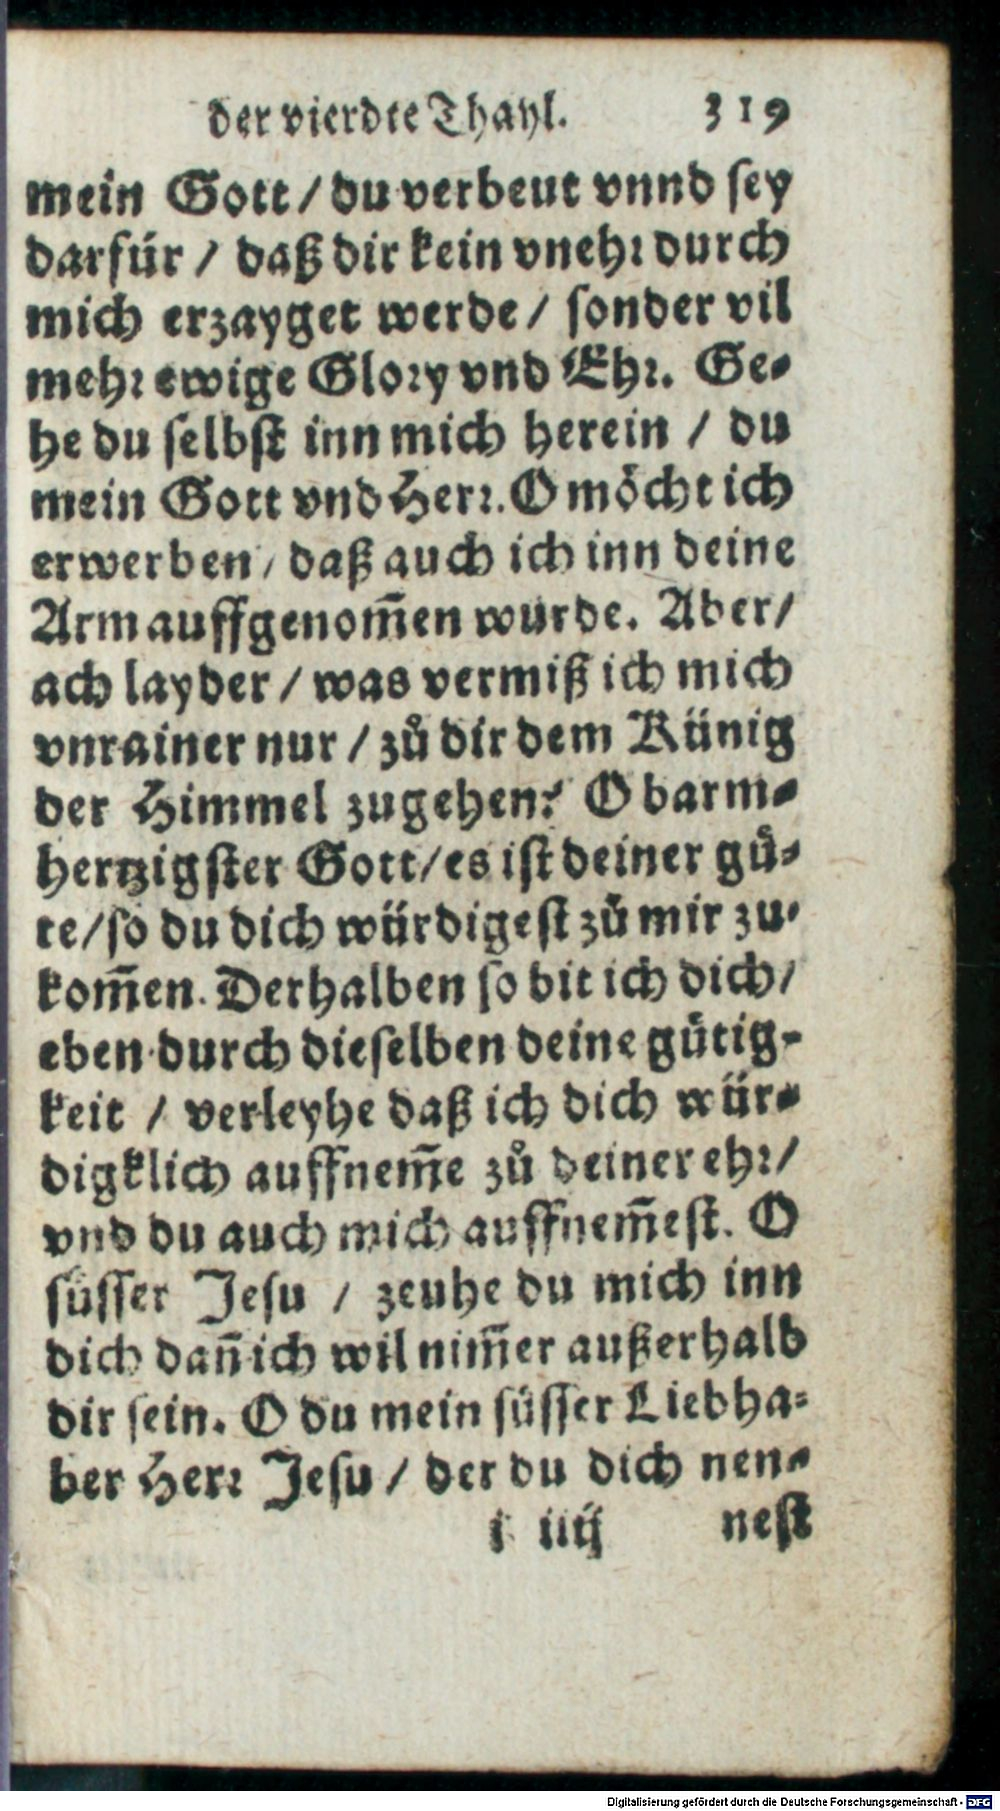 der vierdte Thayl. 319
mein Gott / du verbeut vnnd sey
darfür / daß dir kein vnehr durch
mich erzayget werde / sonder vil
mehr ewige Glory vnd Ehr. Ge-
he du selbst inn mich herein / du
mein Gott vnd Herr. O möcht ich
erwerben / daß auch ich inn deine
Arm auffgenom̃en wurde. Aber /
ach layder / was vermiß ich mich
vnrainer nur / zů dir dem Künig
der Himmel zugehen? O barm-
hertzigster Gott / es ist deiner gů-
te / so du dich würdigest zů mir zu-
kom̃en. Derhalben so bit ich dich /
eben durch dieselben deine gůtig-
keit / verleyhe daß ich dich wür-
digklich auffnem̃e zů deiner ehr /
vnd du auch mich auffnem̃est. O
süsser Jesu / zeuhe du mich inn
dich dañ ich wil nim̃er außerhalb
dir sein. O du mein süsser Liebha-
ber Herr Jesu / der du dich nen-
iiij nest
Digitalisierung gefördert durch die Deutsche Forschungsgemeinschaft - DFG